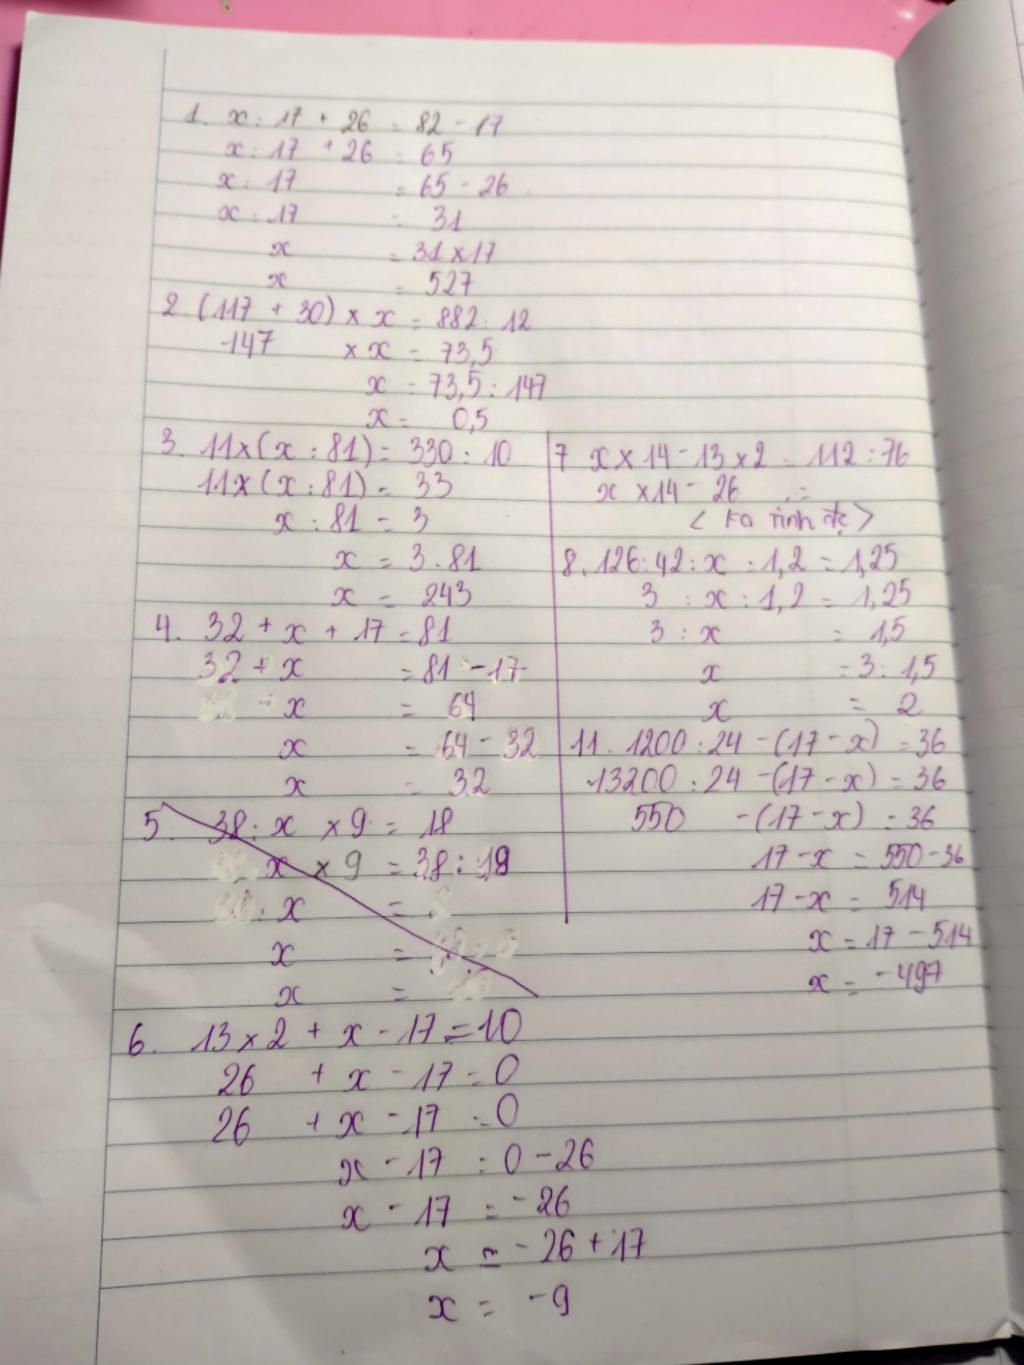 1. x : 17 + 26 = 82 - 17
x : 17 + 26 = 65
x : 17 = 65 - 26
x : 17 = 31
x = 31 x 17
x = 527
2 (117 + 30) x x = 882 : 12
147 x x = 73,5
x = 73,5 : 147
x = 0,5
3. 11 x (x : 81) = 330 : 10
11 x (x : 81) = 33
x : 81 = 3
x = 3 . 81
x = 243
4. 32 + x + 17 = 81
32 + x = 81 - 17
x = 64
x = 64 - 32
x = 32
5. 38 : x x 9 = 18
x x 9 = 38 : 18
: x =
x =
x =
6. 13 x 2 + x - 17 = 10
26 + x - 17 = 0
26 + x - 17 = 0
x - 17 = 0 - 26
x - 17 = - 26
x = - 26 + 17
x = - 9
7 x x 14 - 13 x 2 = 112 : 76
x x 14 - 26 =
< ko tính đc >
8. 126 : 42 : x : 1,2 = 1,25
3 : x : 1,2 = 1,25
3 : x = 1,5
x = 3 : 1,5
x = 2
11. 1200 : 24 - (17 - x) = 36
13200 : 24 - (17 - x) = 36
550 - (17 - x) = 36
17 - x = 550 - 36
17 - x = 514
x = 17 - 514
x = - 497